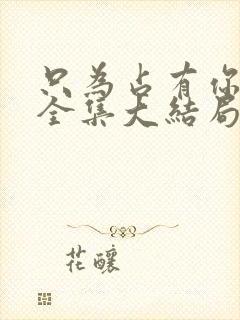 只為占有你
全集大結局
花釀